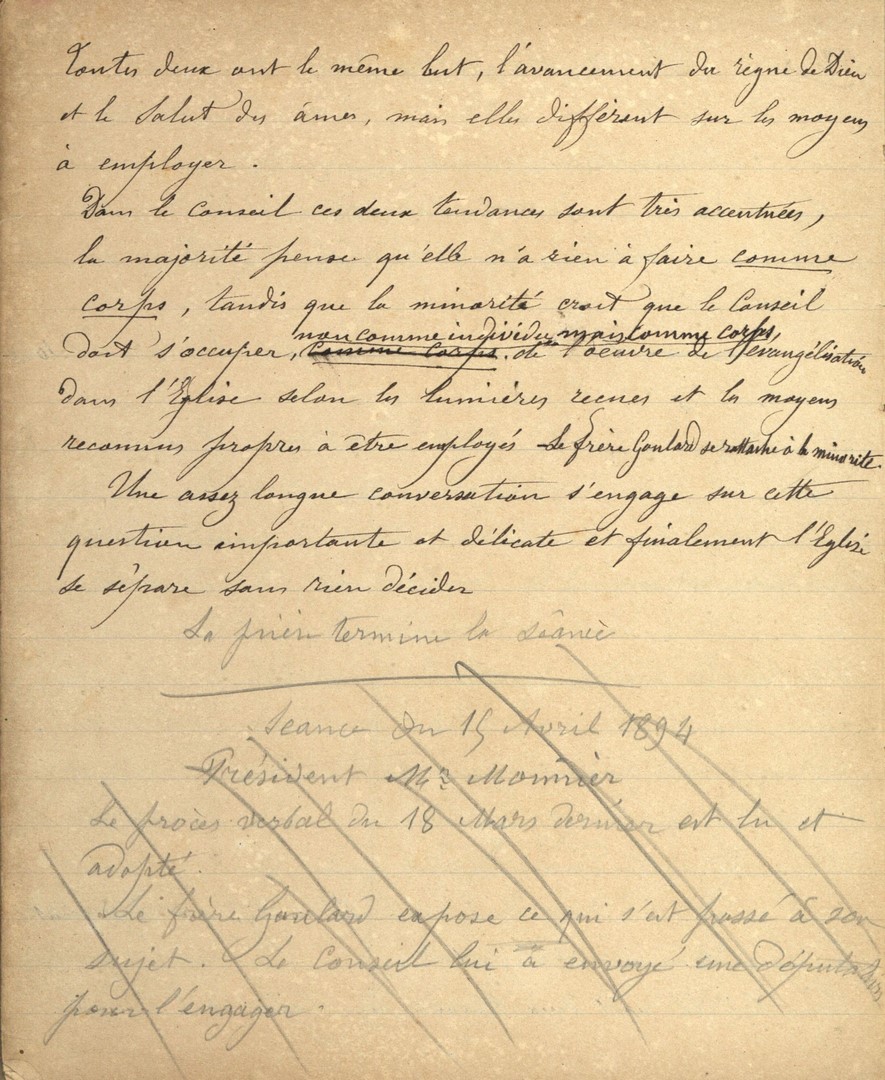 Toutes deux ont le même but, l'avancement du règne de Dieu
et le Salut des âmes, mais elles diffèrent sur les moyens
à employer.
Dans le Conseil ces deux tendances sont très accentuées,
la majorité pense qu'elle n'a rien à faire comme
corps, tandis que la minorité croit que le Conseil
non comme individu mais comme corps,
doit s'occuper, comme corps, de l'oeuvre de l'évangélisation
dans l'Eglise selon les lumières recues et les moyens
reconnus propres à être employés Le frère Goulard se rattache à la minorité.
Une assez longue conversation s'engage sur cette
question importante et délicate et finalement l'Eglise
se sépare sans rien décider
La prière termine la séance
Seance du 15 Avril 1894
Président Mr Monnier
Le procès verbal du 18 Mars dernier est lu et
adopté.
Le frère Goulard expose ce qui s'est passé à son
sujet. Le Conseil lui a envoyé une députation
pour l'engager.